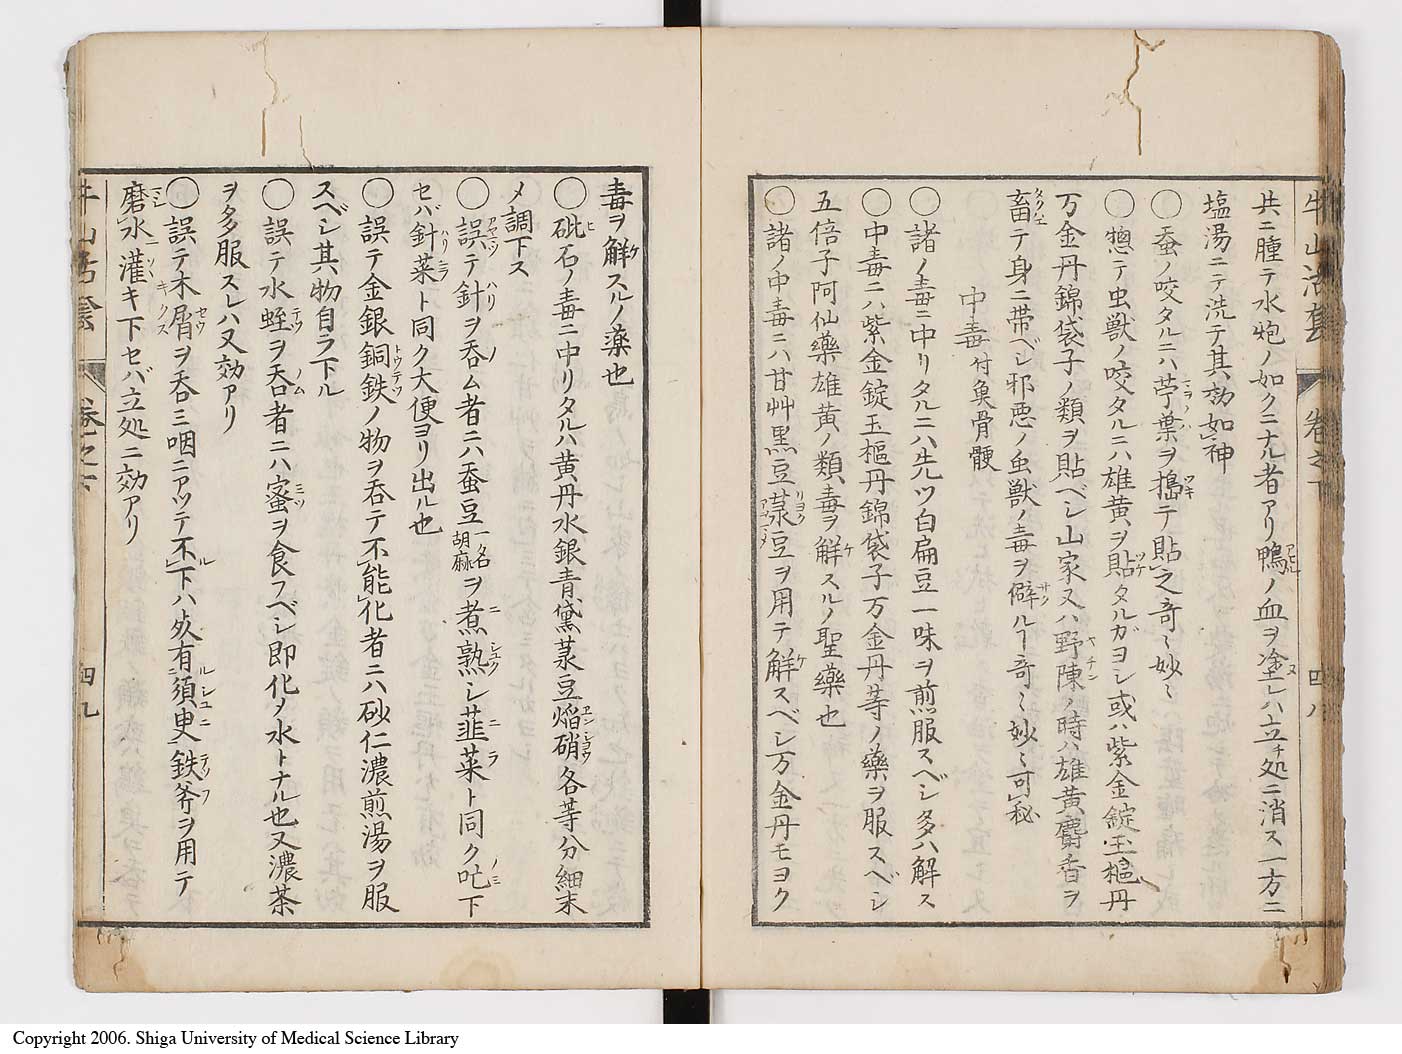 牛山活套 卷之下 四八
共ニ腫テ水炮ノ如クニナル者アリ鴨ノ血ヲ塗レハ立チ処ニ消ス一方ニ
塩湯ニテ洗テ其効如神
〇蚕ノ咬タルニハ苧葉ヲ搗テ貼之奇〻妙〻
〇惣テ虫獣ノ咬タルニハ雄黄ヲ貼タルガヨシ或ハ紫金錠玉樞丹
万金丹錦袋子ノ類ヲ貼ベシ山家又ハ野陳ノ時ハ雄黄麝香ヲ
畜テ身ニ帯ベシ邪悪ノ虫獣ノ毒ヲ僻ルー奇〻妙〻可秘
中毒付魚骨骾
〇諸ノ毒ニ中リタルニハ先ツ白扁豆一味ヲ煎服スベシ多ハ解ス
〇中毒ニハ紫金錠玉樞丹錦袋子万金丹等ノ藥ヲ服スベシ
五倍子阿仙藥雄黄ノ類毒ヲ解スルノ聖藥也
〇諸ノ中毒ニハ甘艸黒豆菉豆ヲ用テ解スベシ万金丹モヨク
毒ヲ解スルノ薬也
〇砒石ノ毒ニ中リタルハ黄丹水銀青黛菉豆焔硝各等分細末
メ調下ス
〇誤テ針ヲ呑ム者ニハ蚕豆一名胡麻ヲ煮熟シ韮菜ト同ク吃下
セバ針菜ト同ク大便ヨリ出ル也
〇誤テ金銀銅鉄ノ物ヲ呑テ不能化者ニハ砂仁濃煎湯ヲ服
スベシ其物自ラ下ル
〇誤テ水蛭ヲ呑者ニハ蜜ヲ食フベシ即化メ水トナル也又濃茶
ヲ多服スレハ又効アリ
〇誤テ木屑ヲ呑三咽ニアツテ不下ハ必有須臾鉄斧ヲ用テ
磨水灌キ下セバ立処ニ効アリ
牛山活套 卷之下 四九
Copyright 2006. Shiga University of Medical Science Library